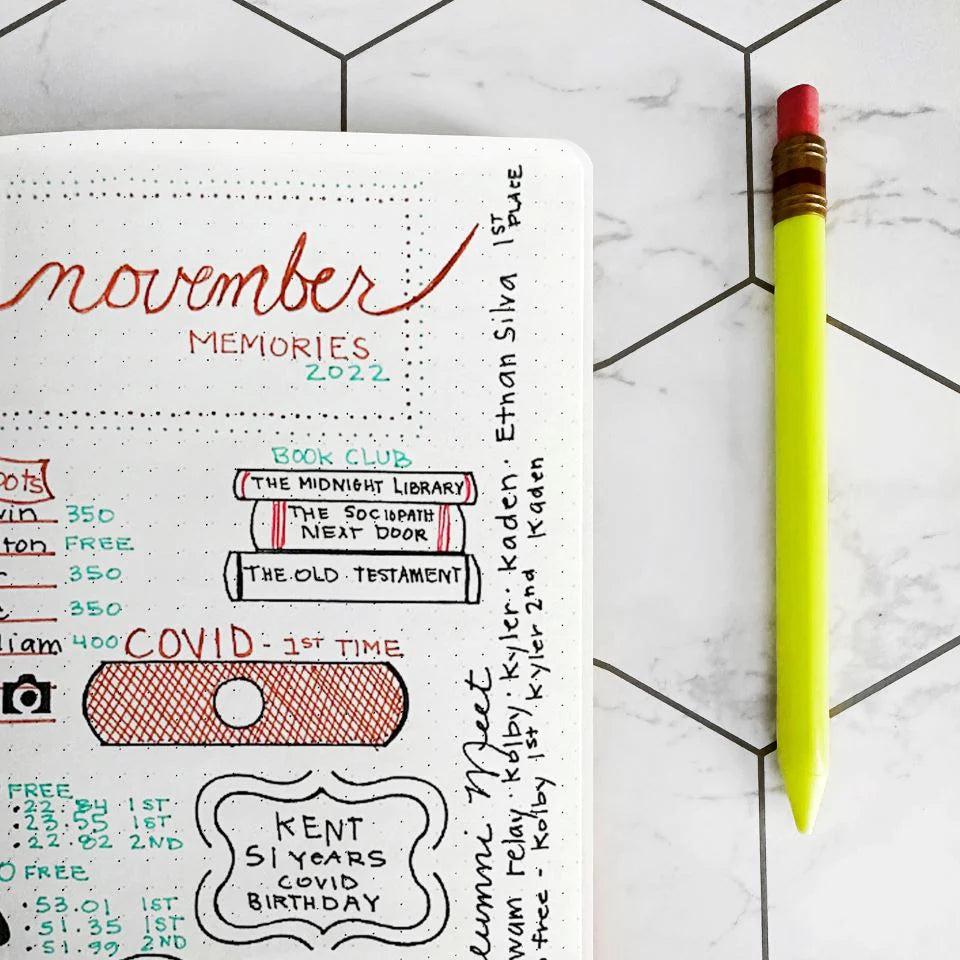 november
MEMORIES
2022
BOOK CLUB
THE MIDNIGHT LIBRARY
THE SOCIOPATH
NEXT DOOR
THE OLD TESTAMENT
350
FREE
350
350
400
COVID - 1ST TIME
FREE
• 22.84 1ST
• 23.55 1ST
• 22.82 2ND
FREE
• 53.01 1ST
• 51.35 1ST
• 51.99 2ND
KENT
51 YEARS
COVID
BIRTHDAY
Meet
relay · Kolby · Kyler · Kaden · Ethan Silva 1ST PLACE
free - Kolby 1st Kyler 2nd Kaden